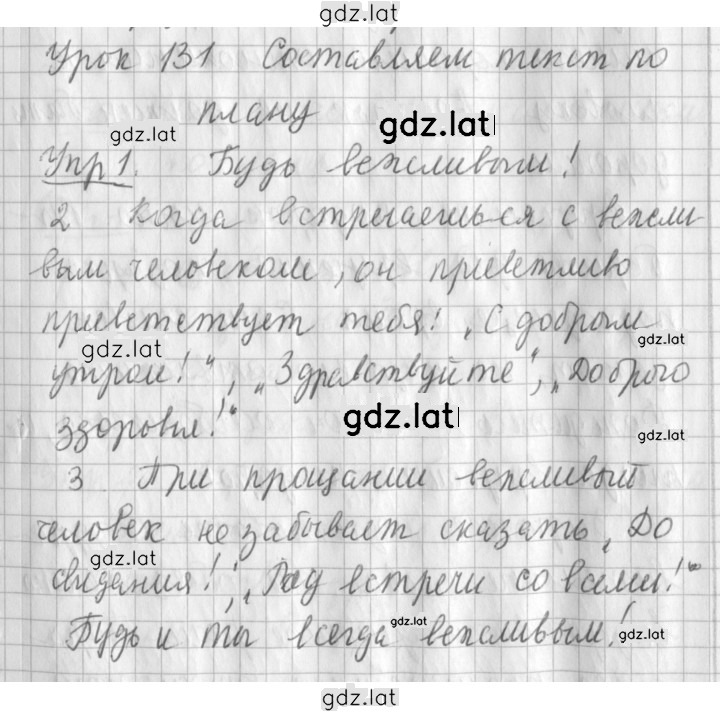 gdz.lat
Урок 131 Составляем текст по
плану
gdz.lat gdz.lat
Упр 1. Будь вежливым!
2 Когда встречаешься с вежли
вым человеком, он приветливо
приветствует тебя! „С добрым
gdz.lat gdz.lat
утром!“, „Здравствуйте“, „Доброго
здоровья!“
gdz.lat gdz.lat
3 При прощании вежливый
человек не забывает сказать „До
gdz.lat
свидания!“, „Рад встречи со всеми!“
Будь и ты всегда вежливым!
gdz.lat gdz.lat
gdz.lat